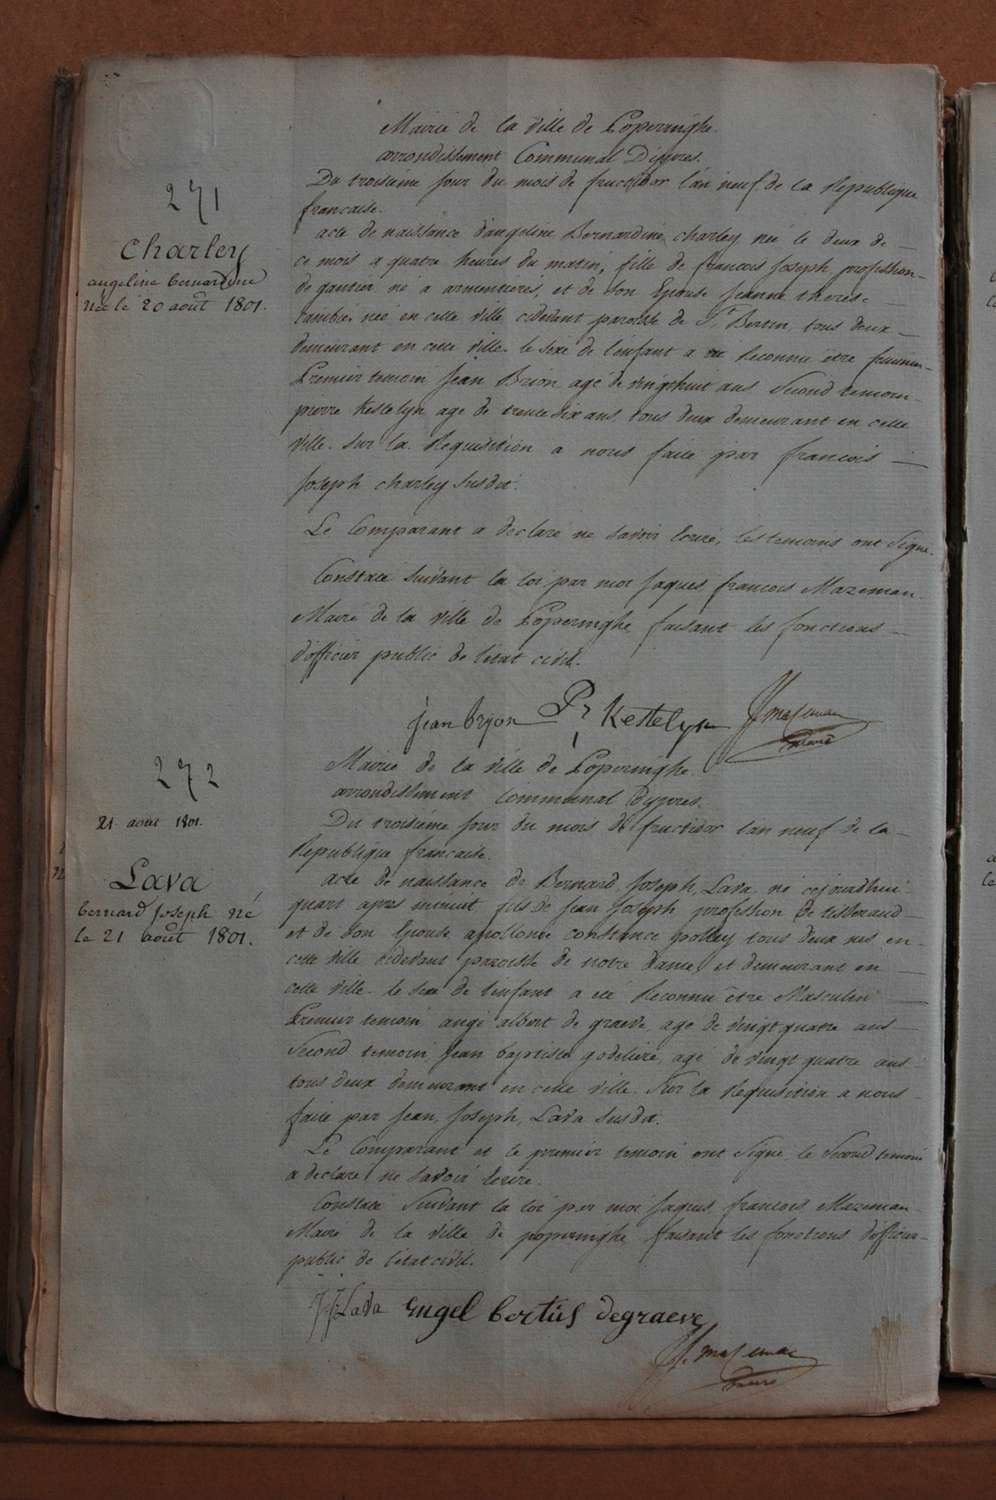 271
Charley
angeline bernardine
née le 20 août 1801.
Mairie de la ville de Poperinghe
arrondissement Communal Dÿpres.
Du troisieme jour du mois de fructidor l'an neuf de la Republique
francaise.
acte de naissance d'angeline Bernardine charley née le deux de
ce mois a quatre heures du matin, fille de francois Joseph profession
de gantier né a armentieres, et de son Epouse Jeanne therese
cambie née en cette ville cidevant paroisse de St Bertin tous deux
demeurant en cette ville. le sexe de l'enfant a été Reconnu être feminin
Premier temoin Jean Brion agé de vingthuit ans Second temoin
pierre Kestelyn age de trente six ans, tous deux demeurant en cette
ville. sur la Requisition a nous faite par francois
Joseph charley susdit.
Le Comparant a declaré ne savoir ecrire, les temoins ont signe.
Constaté suivant la loi par moi Jaques francois Mazeman
Maire de la ville de Poperinghe faisant les fonctions
d'officier public de l'etat civil.
jean brjon Pr Kestelyn JJ maseman
maire
272
21 août 1801.
Lava
bernard Joseph né
le 21 août 1801.
Mairie de la ville de Poperinghe
arrondissement communal Dyppres.
Du troisieme jour du mois de fructidor l'an neuf de la
Republique francaise.
acte de naissance de Bernard, Joseph, Lava, né cejourdhui
quart apres minuit fils de Jean Joseph profession de tisserand
et de son Epouse apollonie constance pottey tous deux nés en
cette ville cidevant paroisse de notre dame, et demeurant en
cette ville. le sexe de l'enfant a été Reconnu être Masculin
Premier temoin ange albert de graeve, age de vingt quatre ans
Second temoin, Jean baptiste godeliere, agé de vingt quatre ans
tous deux demeurant en cette ville. Sur la Requisition a nous
faite par Jean, Joseph, Lava susdit.
Le Comparant et le premier temoin ont signe, le second temoin
a declaré ne savoir ecrire.
Constaté Suivant la loi par moi Jaques, francois Mazeman
Maire de la ville de poperinghe faisant les fonctions d'officier
public de l'etat civil.
JJ Lava Engel bertus degraeve
JJ maseman
maire